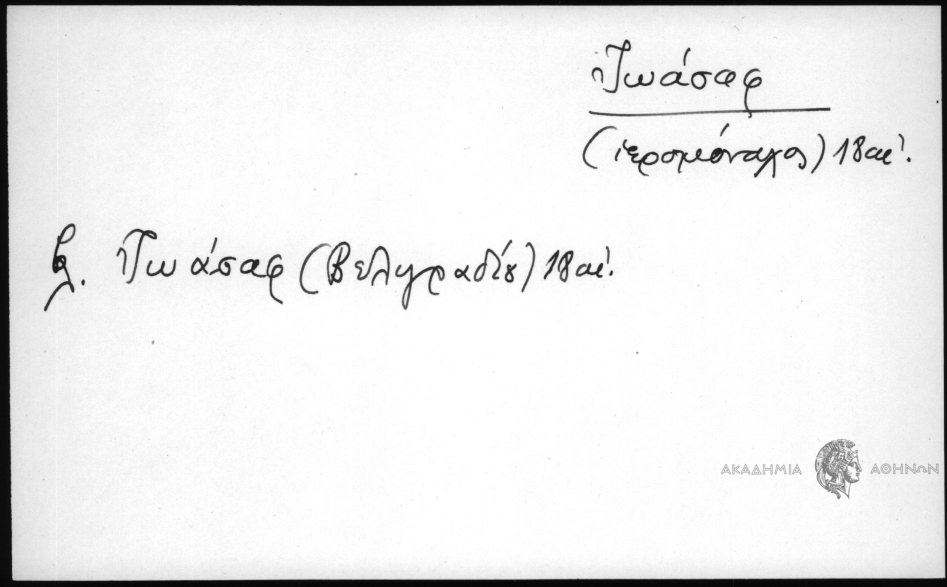 Ἰωάσαφ
(ἱερομόναχος) 18 αἰ.
βλ. Ἰωάσαφ (Βελιγραδίου) 18 αἰ.
ΑΚΑΔΗΜΙΑ ΑΘΗΝΩΝ